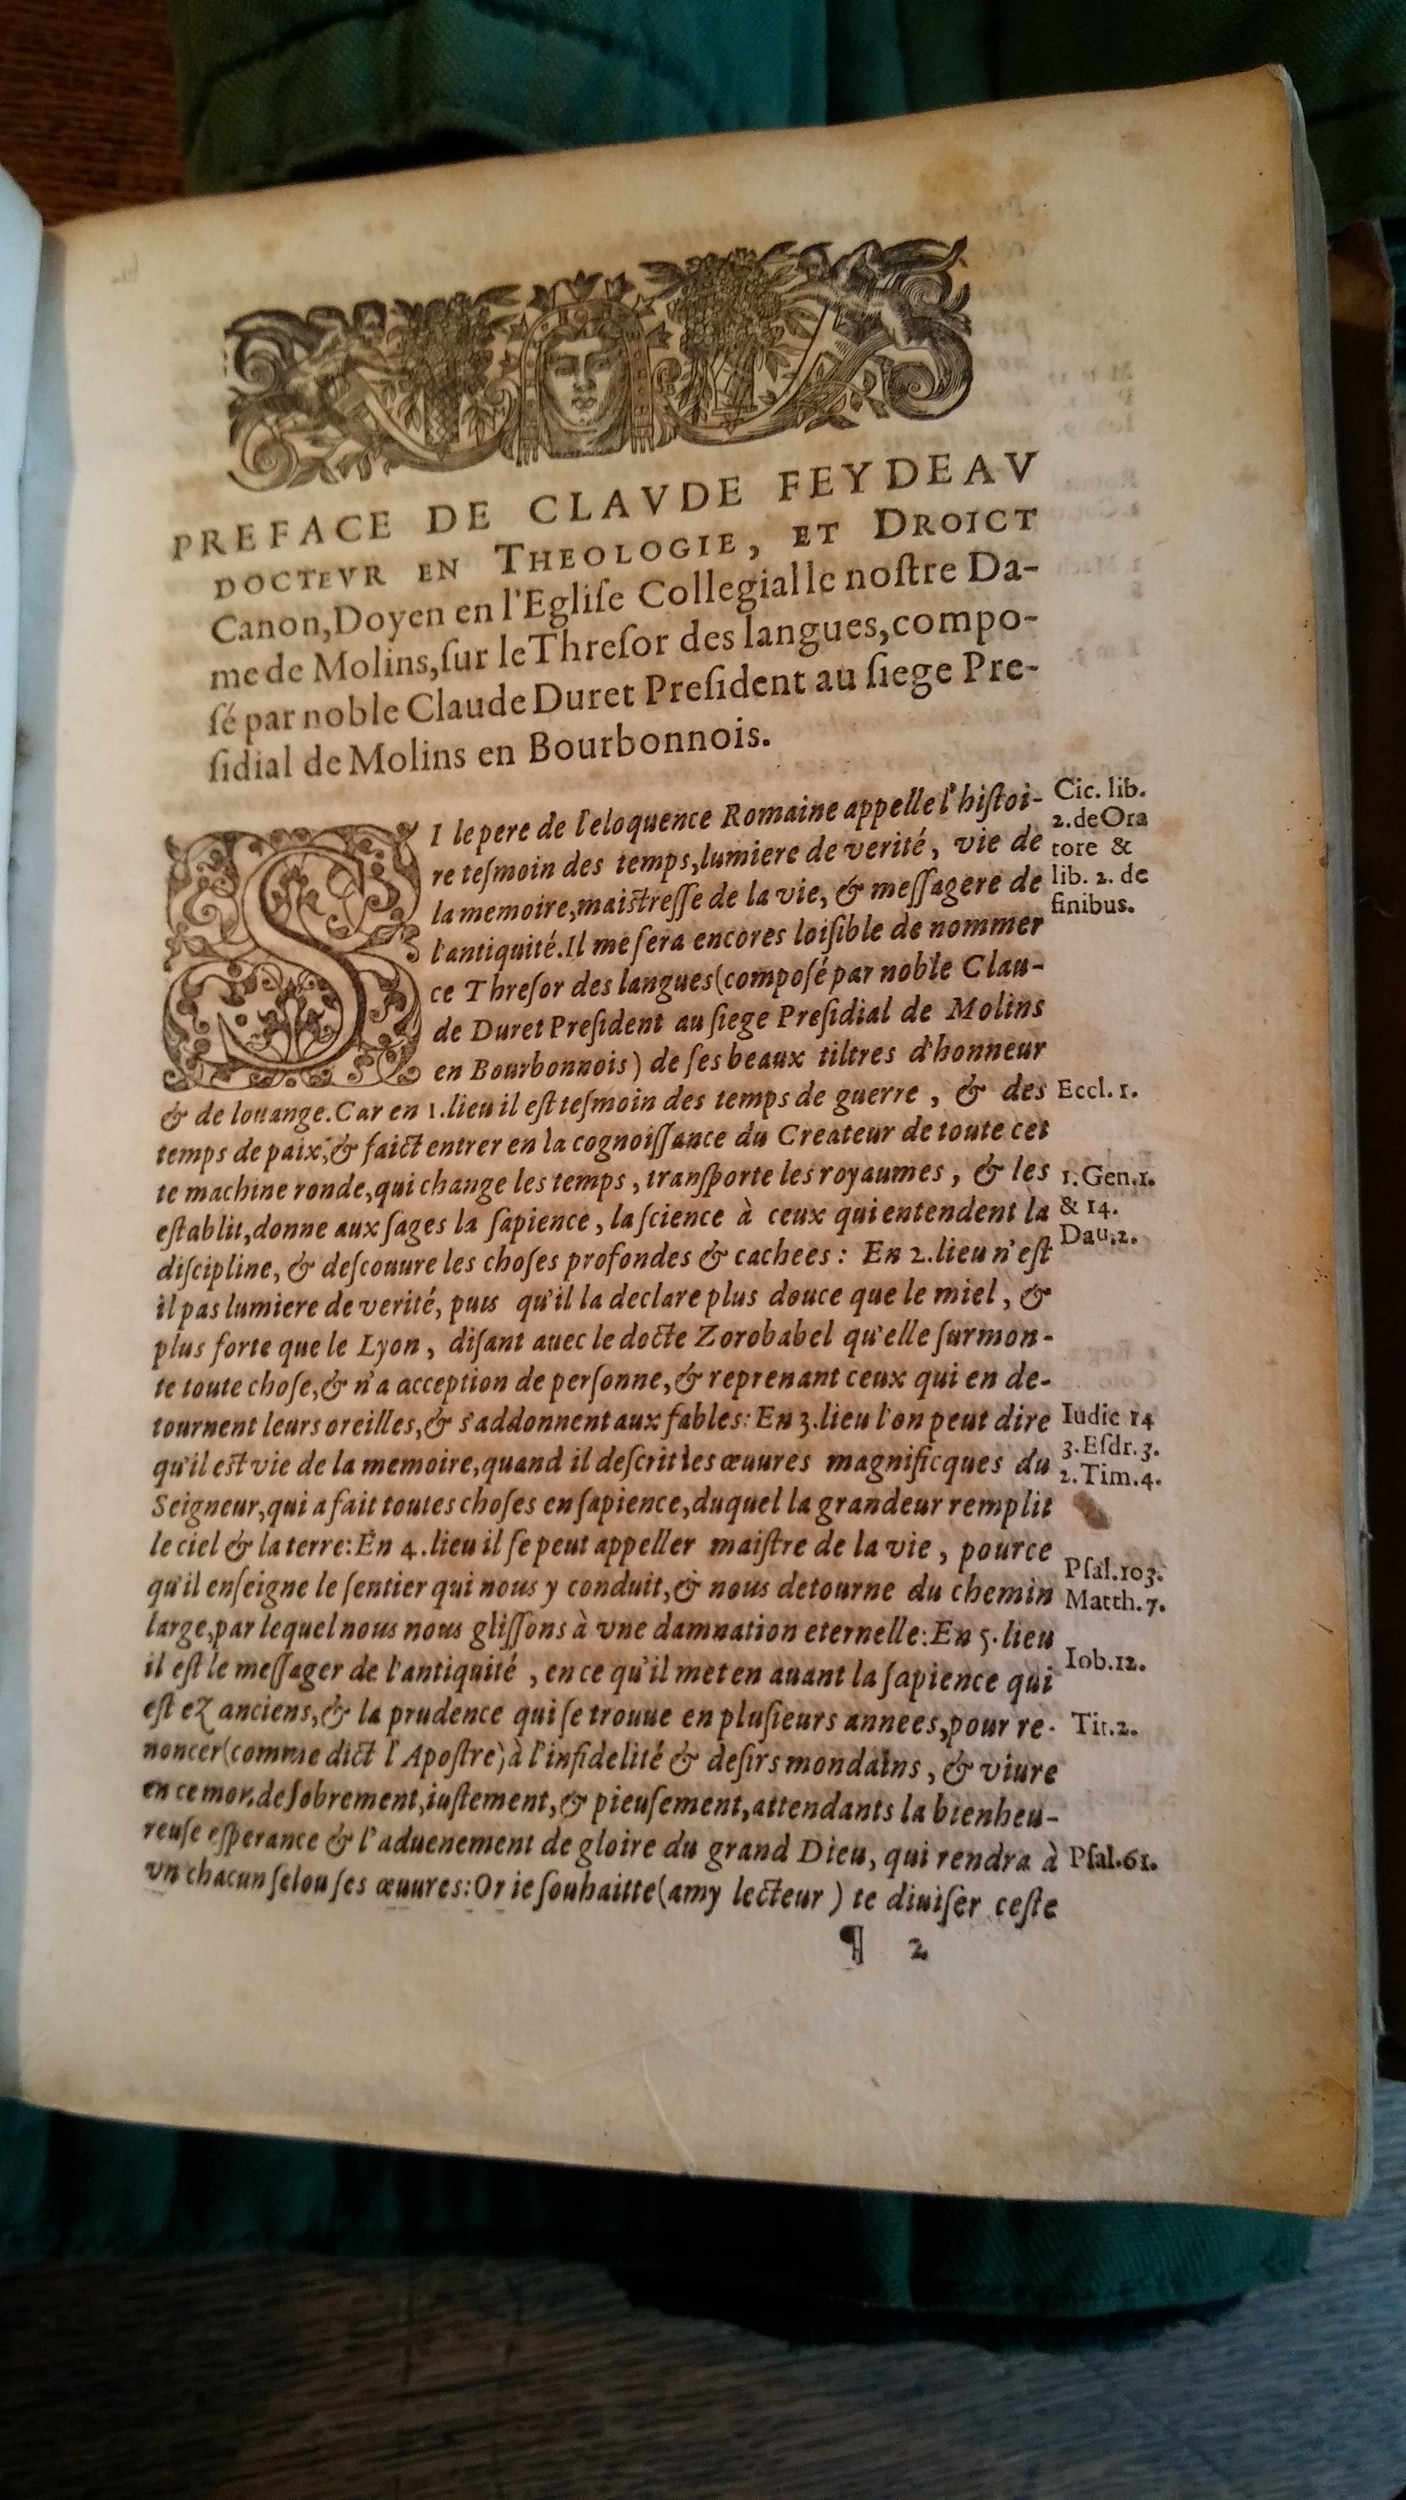 PREFACE DE CLAVDE FEYDEAV
DOCTEVR EN THEOLOGIE, ET DROICT
Canon, Doyen en l'Egliſe Collegialle noſtre Da-
me de Molins, ſur le Threſor des langues, compo-
ſé par noble Claude Duret Preſident au ſiege Pre-
ſidial de Molins en Bourbonnois.
SI le pere de l'eloquence Romaine appelle l'hiſtoi-
re teſmoin des temps, lumiere de verité, vie de
la memoire, maiſtreſſe de la vie, & meſſagere de
l'antiquité. Il me ſera encores loiſible de nommer
ce Threſor des langues (compoſé par noble Clau-
de Duret Preſident au ſiege Preſidial de Molins
en Bourbonnois) de ſes beaux tiltres d'honneur
& de louange. Car en 1. lieu il eſt teſmoin des temps de guerre, & des
temps de paix, & faict entrer en la cognoiſſance du Createur de toute cet
te machine ronde, qui change les temps, tranſporte les royaumes, & les
eſtablit, donne aux ſages la ſapience, la ſcience à ceux qui entendent la
diſcipline, & deſcouure les choſes profondes & cachees: En 2. lieu n'eſt
il pas lumiere de verité, puis qu'il la declare plus douce que le miel, &
plus forte que le Lyon, diſant auec le docte Zorobabel qu'elle ſurmon-
te toute choſe, & n'a acception de perſonne, & reprenant ceux qui en de-
tournent leurs oreilles, & s'addonnent aux fables: En 3. lieu l'on peut dire
qu'il eſt vie de la memoire, quand il deſcrit les œuures magnificques du
Seigneur, qui a fait toutes choſes en ſapience, duquel la grandeur remplit
le ciel & la terre: En 4. lieu il ſe peut appeller maiſtre de la vie, pource
qu'il enſeigne le ſentier qui nous y conduit, & nous detourne du chemin
large, par lequel nous nous gliſſons à vne damnation eternelle: En 5. lieu
il eſt le meſſager de l'antiquité, en ce qu'il met en auant la ſapience qui
eſt ez anciens, & la prudence qui ſe trouue en pluſieurs annees, pour re-
noncer (comme dict l'Apoſtre) à l'infidelité & deſirs mondains, & viure
en ce monde ſobrement, iuſtement, & pieuſement, attendants la bienheu-
reuſe eſperance & l'aduenement de gloire du grand Dieu, qui rendra à
vn chacun ſelou ſes œuures: Or ie ſouhaitte (amy lecteur) te diuiſer ceſte
¶ 2
Cic. lib.
2. de Ora
tore &
lib. 2. de
finibus.
Eccl. 1.
1. Gen. 1.
& 14.
Dau. 2.
Iudic 14
3. Eſdr. 3.
2. Tim. 4.
Pſal. 103.
Matth. 7.
Iob. 12.
Tit. 2.
Pſal. 61.